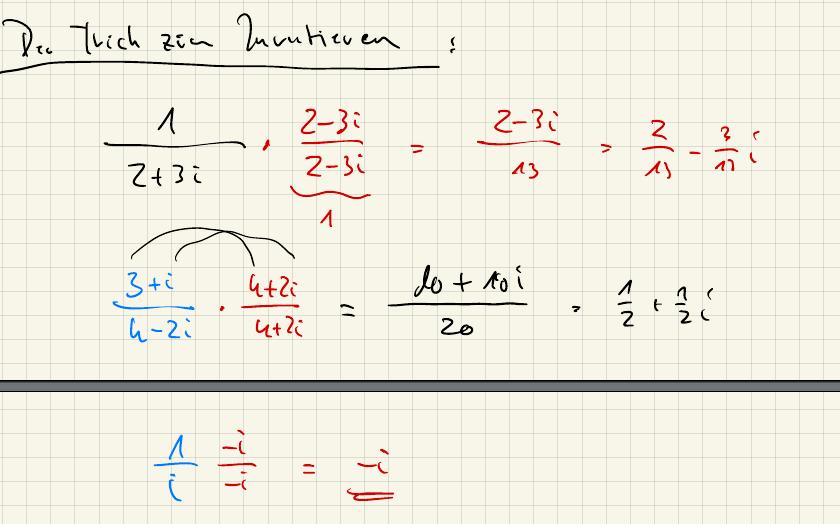 Der Trick zum Invertieren :
1/(2+3i) · (2-3i)/(2-3i) = (2-3i)/13 = 2/13 - 3/13 i
1
(3+i)/(4-2i) · (4+2i)/(4+2i) = (10+10i)/20 = 1/2 + 1/2 i
1/i -i/-i = -i